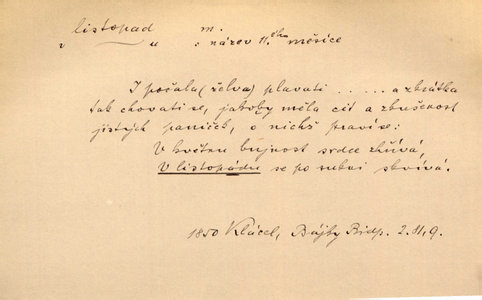 listopad m.
v u : název 11.ého měsíce
I počala (želva) plavati ..... a zkrátka
tak chovati se, jakoby měla cit a zkušenost
jistých paniček, o nichž praví se:
V květnu bujnost srdce
V listopádu se po nebi skrývá.
1850 Klácel, Bájky Bidp. 2.81,9.